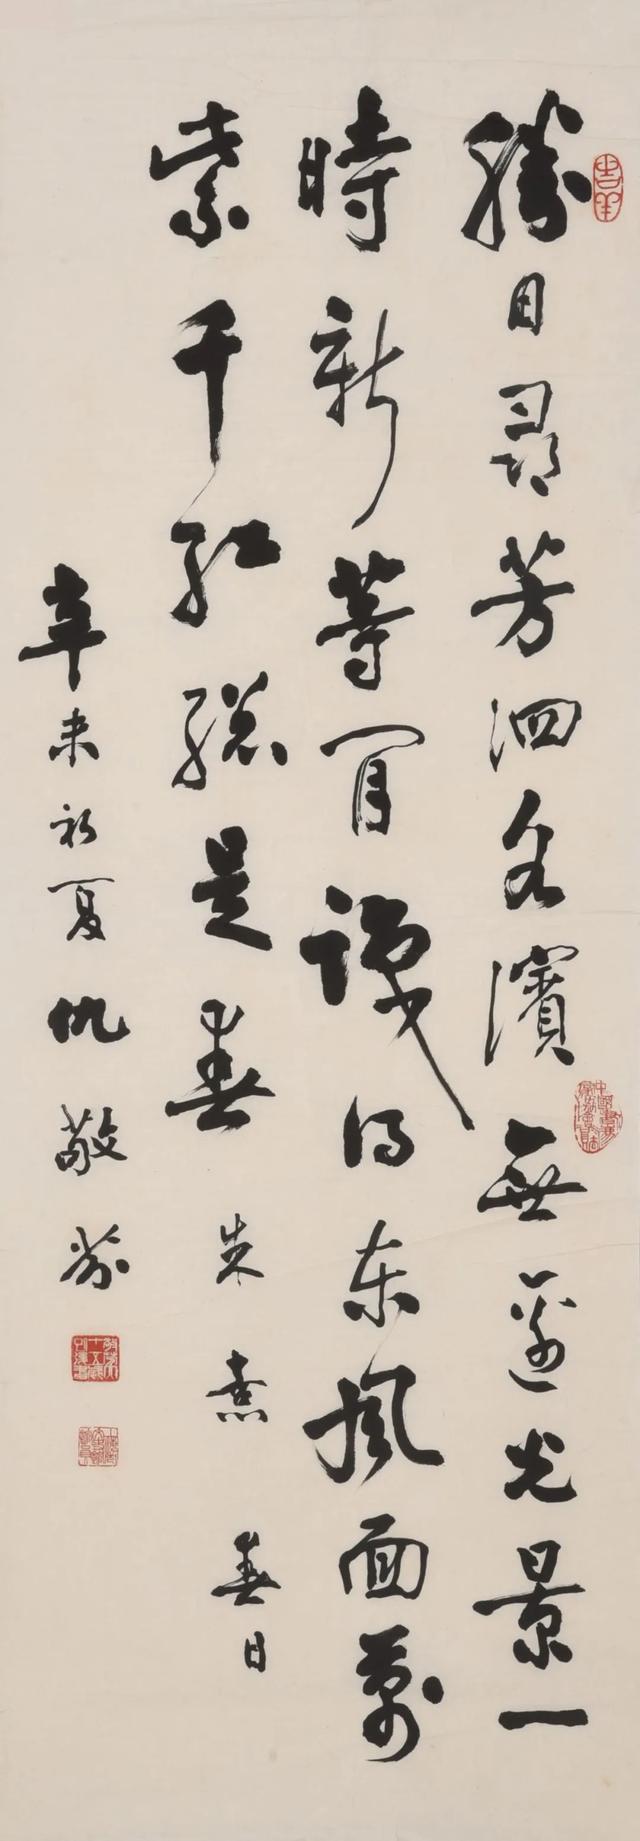 吉羊
勝日尋芳泗水濱無邊光景一
時新等閒識得東風面萬
紫千紅總是春 朱熹 春日
辛未初夏仇敬